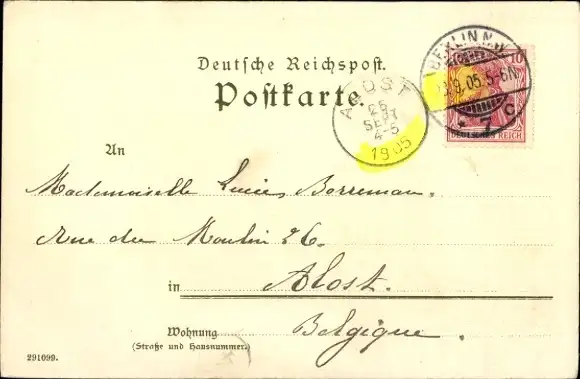 Deutsche Reichspost.
Postkarte.
ALOST
25
SEPT
4-5
1905
BERLIN N.W.
9.05.5-6N.
* 7 c
10
DEUTSCHES REICH
An
Mademoiselle Lucie Borreman.
Rue du Moulin 26.
in Alost.
Belgique.
Wohnung
(Straße und Hausnummer.)
291099.